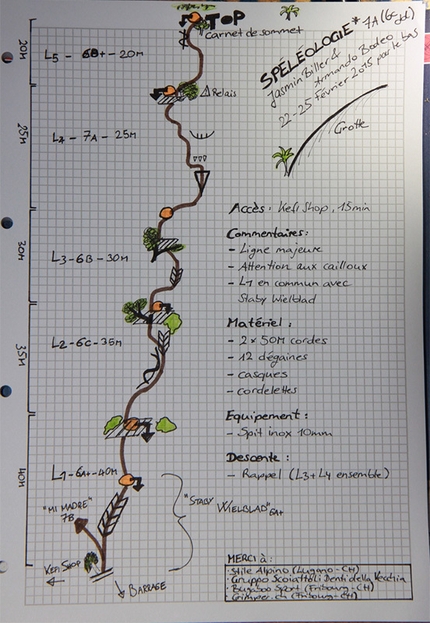 TOP
carnet de sommet
20M
L5 - 6B+ - 20M
Relais
25M
L4 - 7A - 25M
30M
L3 - 6B - 30M
35M
L2 - 6C - 35M
40M
L1 - 6A+ - 40M
"MI MADRE"
7B
KEFI SHOP
BARRAGE
"STABY WIELBLAD" 6A+
SPÉLÉOLOGIE* 7A
Jasmin Biller &
Armando Bodeo
22-25 Février 2015 par le bas
Grotte
Accès: Kefi Shop, 15min
Commentaires:
- Ligne majeure
- Attention aux cailloux
- L1 en commun avec
Slaby Wielblad
Matériel:
- 2 x 50M cordes
- 12 dégaines
- casques
- cordelettes
Equipement:
- Spit inox 10mm
Descente:
- Rappel (L3+L4 ensemble)
MERCI à:
· Stile Alpino (Lugano-CH)
· Gruppo Scoiattoli Denti della Vecchia
· Bugaboo Sport (Fribourg-CH)
· Grimper.ch (Fribourg-CH)